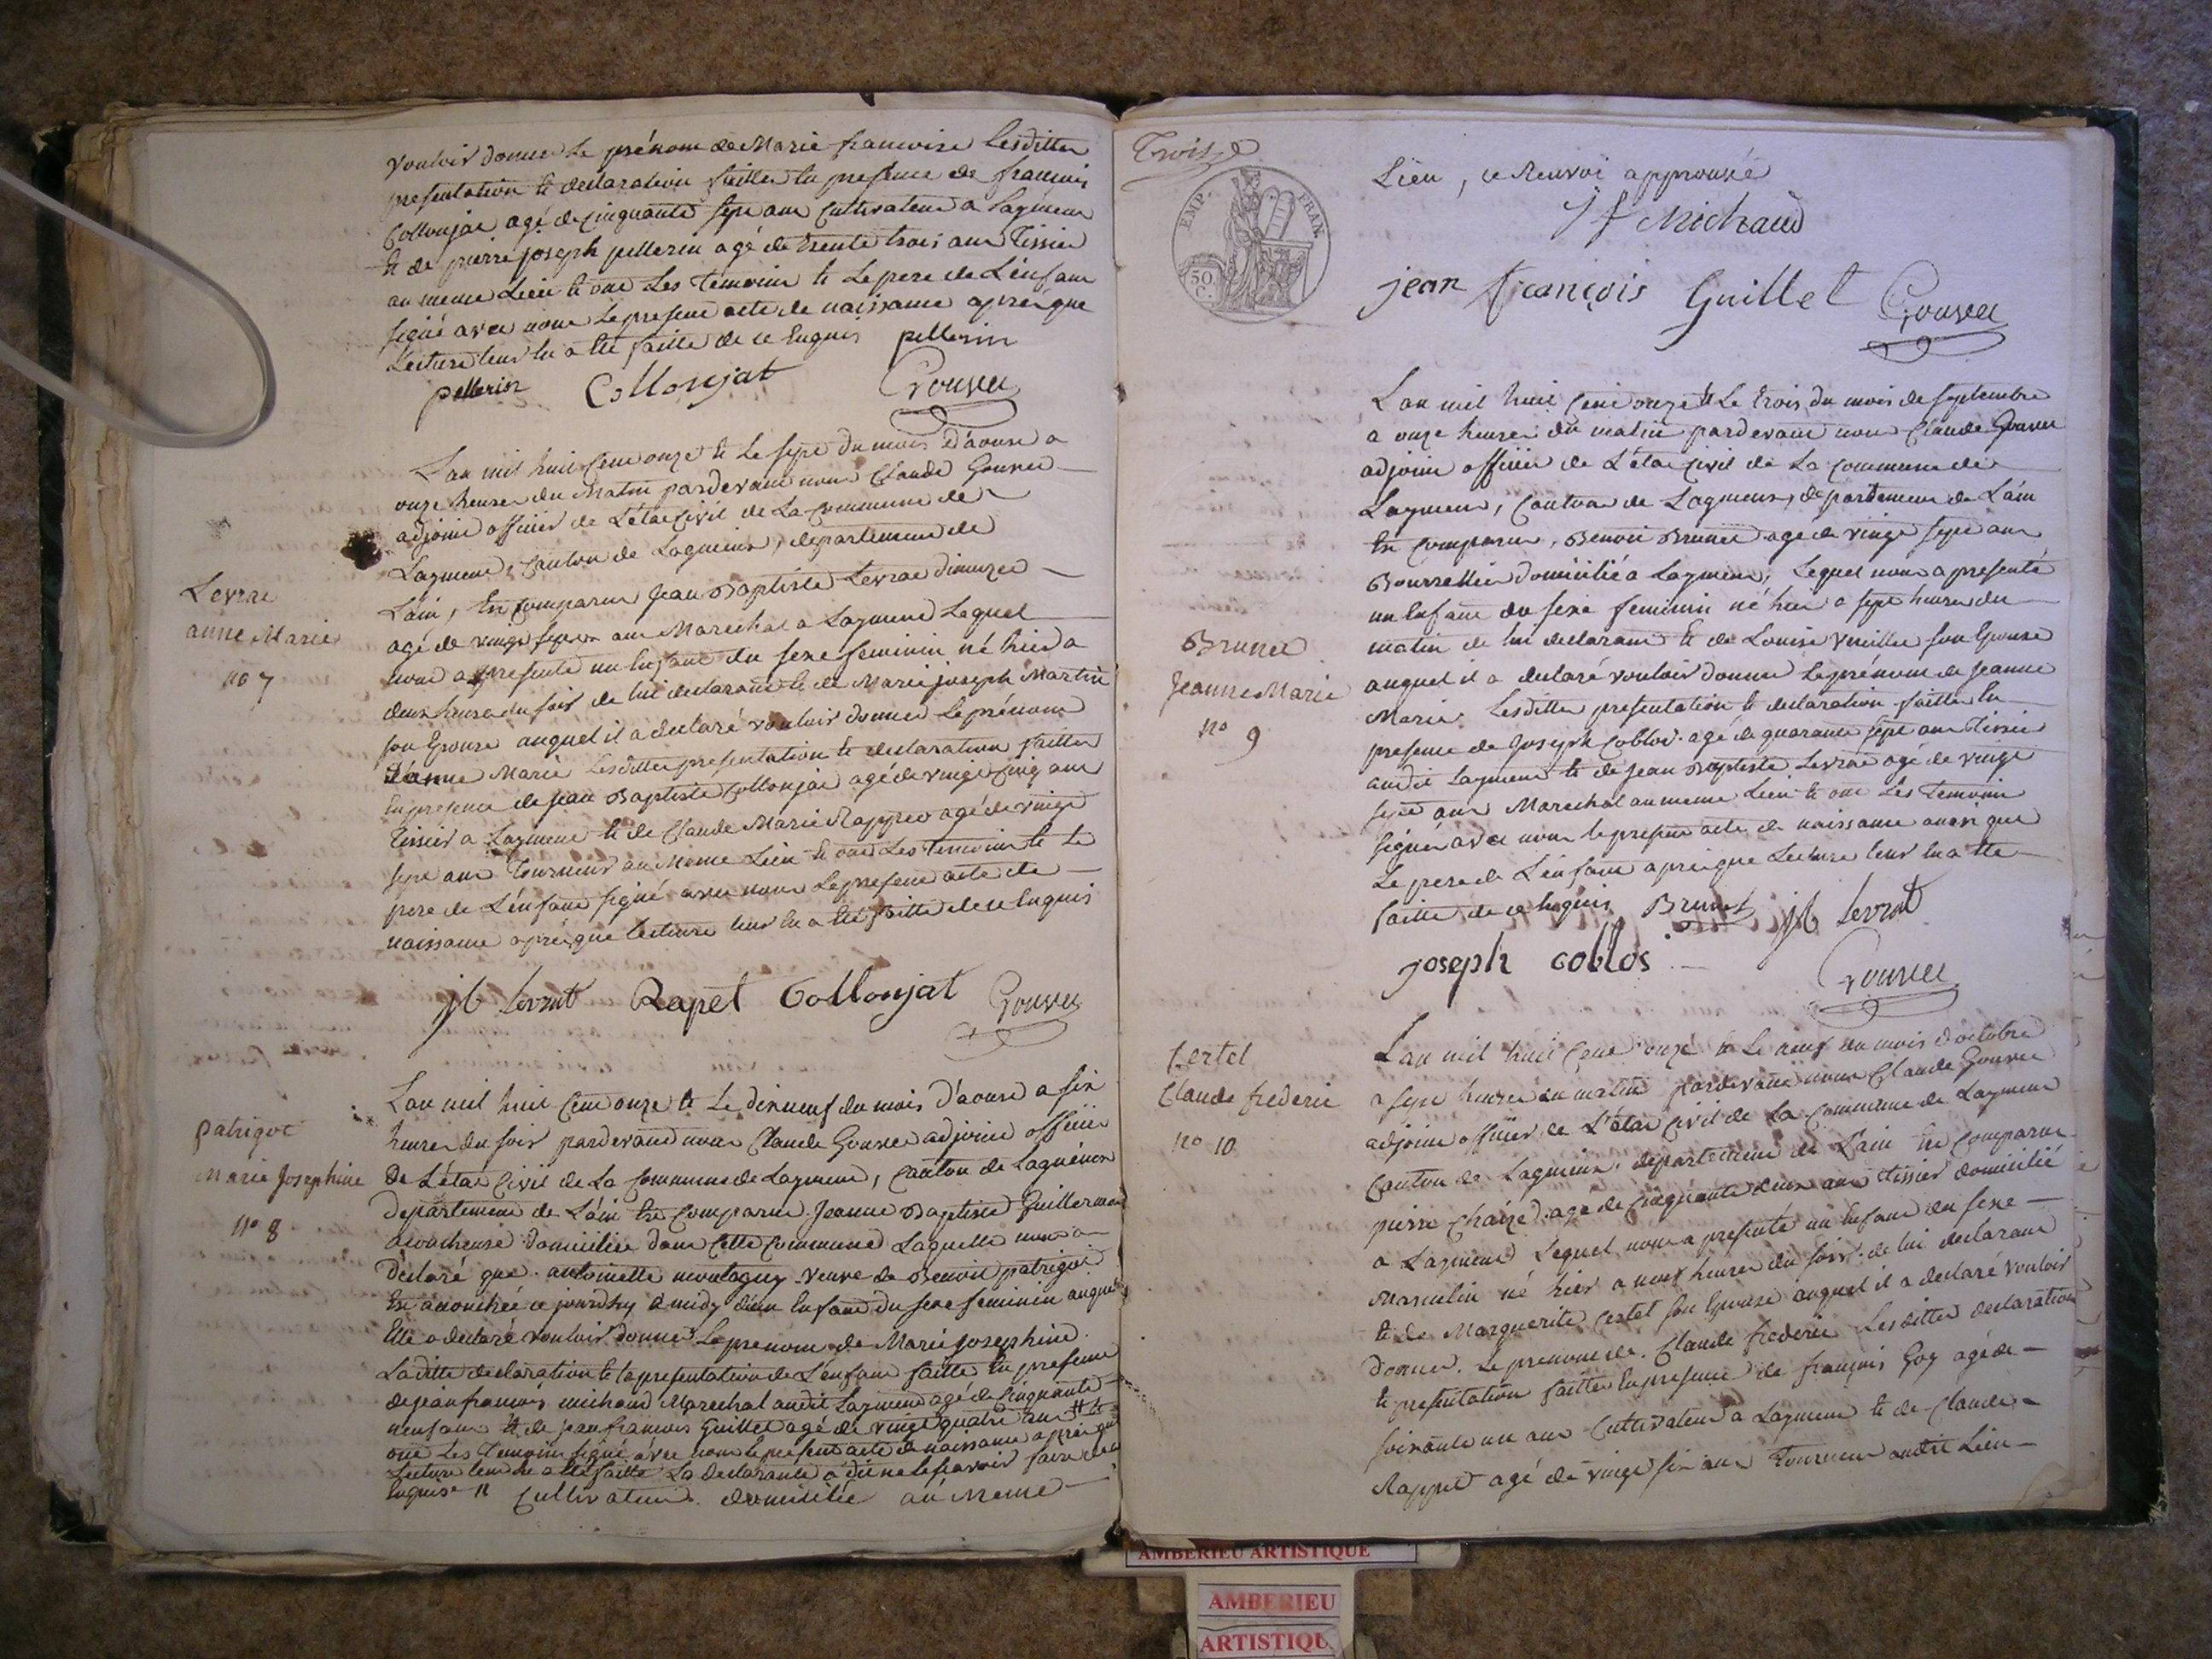 vouloir donner le prénom de Marie francoise Lesdittes
presentation et declaration faittes en presence de francois
Collonjat agé de cinquante sept ans cultivateur a Lagnieu
et de pierre joseph pellerin agé de trente trois ans Tissier
au meme Lieu et ont Les temoins et Le pere de L'enfant
signé avec nous Le present acte de naissance apres que
Lecture leur en a été faitte de ce enquis pellerin
pellerin Collonjat Gouvet
L'an mil huit cent onze et Le sept du mois d'aoust a
onze heures du Matin pardevant nous Claude Gouvet
adjoint officier de L'état Civil de La Commune de
Canton de Lagnieux, departement de
L'ain, est comparu Jean Baptiste Levrat
agé de vingt sept ans Marechal a Lequel
nous a presenté un Enfant du sexe feminin né hier a
deux heures du soir de lui declarant et de Marie joseph Martin
son Epouse auquel il a declaré vouloir donner Le prénom
d'anne Marie Lesdittes presentation et declaration faittes
En presence de Jean Baptiste Collonjat agé de vingt cinq ans
Tissier a et de Claude Marie Rappet agé de vingt
sept ans Tourneur au Meme Lieu et ont Les temoins et Le
pere de L'enfant signé avec nous Le present acte de
naissance aprés que lecture leur en a été faitte de ce Enquis
Levrat
anne Marie
no 7
jb levrat Rapet Collonjat Gouvet
L'an mil huit cent onze et Le dixneuf du mois d'aoust a six
heures du soir pardevant nous Claude Gouvet adjoint officier
De L'état Civil de La Commune de , Canton de Lagnieux
Departement de L'ain Est Comparue Jeanne Baptiste Guillermet
acoucheuse domiciliée dans Cette Commune Laquelle nous a
Déclaré que antoinette montagny veuve de Benoit patrigot
Est accouchée ce jourdhuy a midy d'un Enfant du sexe feminin auquel
Elle a declaré vouloir donner Le prenom de Marie Josephine
Laditte declaration et la presentation de L'enfant faitte En presence
de jean francois michaud Marechal audit agé de Cinquante
neuf ans et de jean francois Guillet agé de vingt quatre ans # et
ont Les Temoins signé avec nous le present acte de naissance aprés que
Lecture leur en a été faitte La declarante a dit ne le scavoir faire de ce
enquise # Cultivateur domicilié au Meme
patrigot
Marie Josephine
no 8
Trois
EMP. FRAN.
50 C.
Lieu, ce Renvoi approuvé
Jf Michaud
jean françois Guillet Gouvet
L'an mil huit Cent onze et Le trois du mois de septembre
a onze heures du matin pardevant nous Claude Gouvet
adjoint officier de L'état Civil de La Commune de
Canton de Lagnieux, departement de L'ain
Est Comparu, Benoit Brunet agé de vingt sept ans
Bourrellier domicilié a Lequel nous a presenté
un Enfant du sexe feminin né hier a sept heures du
matin de lui declarant et de Louise son Epouse
auquel il a declaré vouloir donner Le prénom de Jeanne
Marie Lesdittes presentation et declaration faittes En
presence de Joseph Coblos agé de quarante sept ans Tissier
audit et de Jean Baptiste Levrat agé de vingt
sept ans Marechal au meme Lieu et ont Les Temoins
signés avec nous le present acte de naissance ainsi que
Le pere de L'enfant aprés que Lecture leur en a été
faitte de ce Enquis Brunet jb levrat
joseph coblos Gouvet
Brunet
Jeanne Marie
no 9
L'an mil huit Cent onze et Le neuf du mois d'octobre
a sept heures du matin pardevant nous Claude Gouvet
adjoint officier de L'état Civil de La Commune de
Canton de Lagnieux, departement de L'ain Est Comparu
pierre agé de Cinquante deux ans tissier domicilié
a Lequel nous a presenté un Enfant du sexe
Masculin né hier a neuf heures du soir de lui declarant
et de Marguerite Certet son Epouse auquel il a declaré vouloir
donner Le prenom de Claude frederic Lesdittes declaration
et presentation faittes En presence de françois Goy agé de
soixante un ans Cultivateur a et de Claude
Rappet agé de vingt six ans Tourneur audit Lieu
Certet
Claude frederic
no 10
AMBERIEU ARTISTIQUE
AMBERIEU
ARTISTIQU